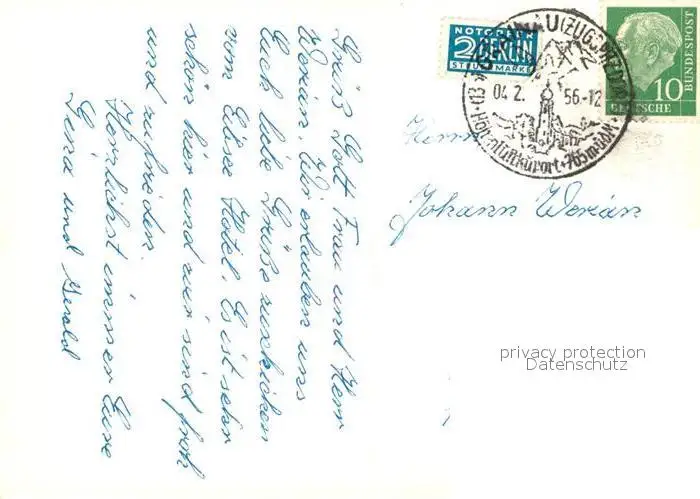 Grüß Gott Frau und Herr
Werián. Wir erlauben uns
Euch liebe Grüße zuschicken
vom Elise Hotel. Es ist sehr
schön hier und wir sind froh
und zufrieden.
Herrlichst immer Eure
und Gerold
NOTOPFER
2 BERLIN
STEUERMARKE
(13b) GRAINAU (ZUGSPITZDORF)
04.2. 56.-12
Höhenluftkurort · 765m ü.d.M.
10
DEUTSCHE
BUNDESPOST
Herrn
Johann Werián
privacy protection
Datenschutz